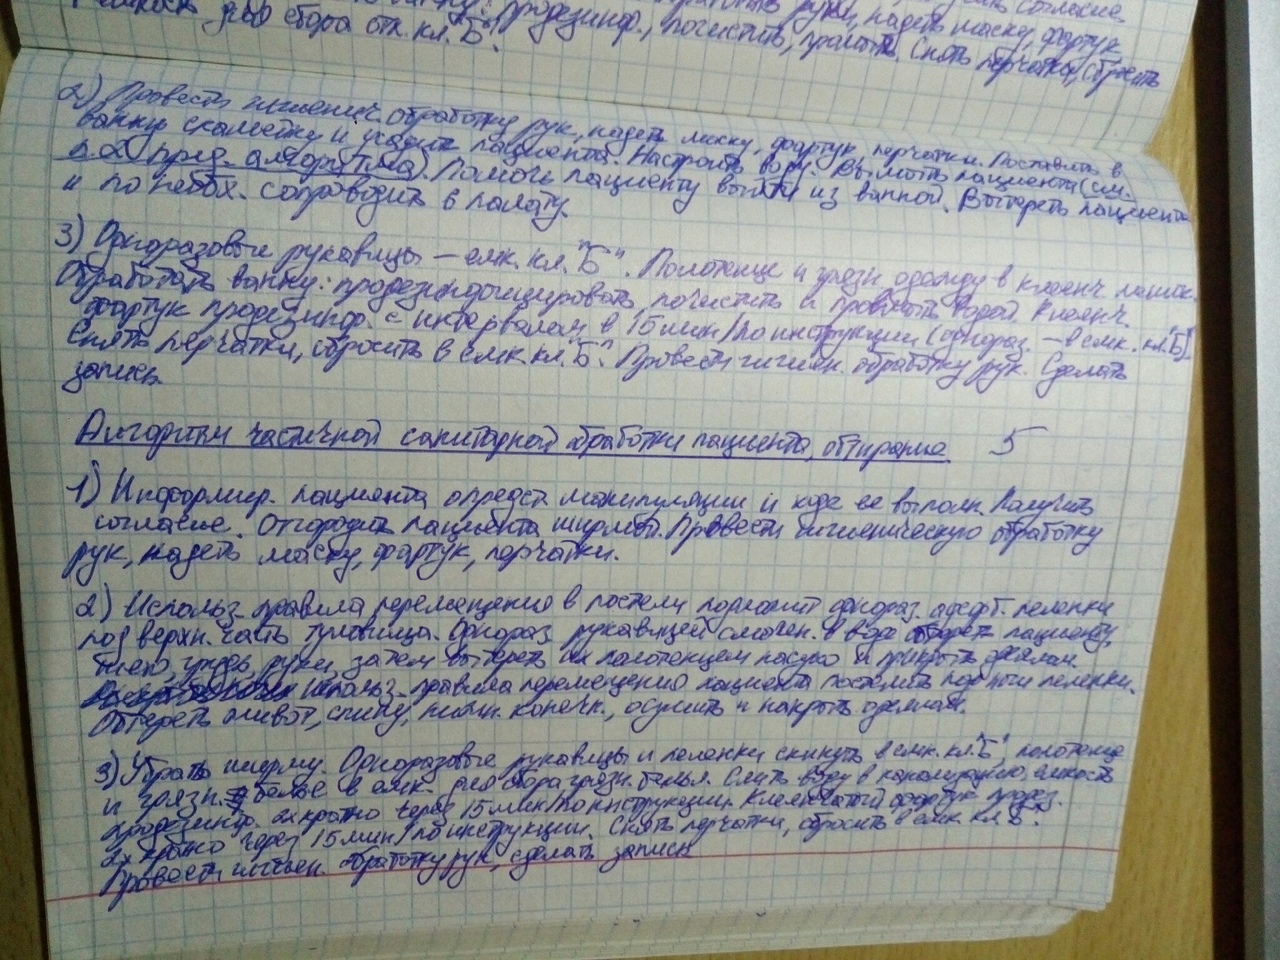 руки, надеть маску, фартук
продезинф., почистить, промыть. Снять перчатки, сбросить
для сбора отх. кл. "Б".
2) Провести гигиенич. обработку рук, надеть маску, фартук, перчатки. Поставить в
ванну скамейку и усадить пациента. Настроить воду. Вымыть пациента (см.
п.2 пред. алгоритма). Помочь пациенту выйти из ванной. Вытереть пациента
и по необх. сопроводить в палату.
3) Одноразовые рукавицы – емк. кл. "Б". Полотенце и грязн. одежду в клеенч. мешок.
Обработать ванну: продезинфицировать, почистить и промыть водой. Клеенч.
фартук продезинф. с интервалом в 15 мин/по инструкции (однораз. – в емк. кл. "Б").
Снять перчатки, сбросить в емк. кл. "Б". Провести гигиен. обработку рук. Сделать
запись.
Алгоритм частичной санитарной обработки пациента, обтирание 5
1) Информир. пациента о предст. манипуляции и ходе ее выполн. Получить
согласие. Отгородить пациента ширмой. Провести гигиеническую обработку
рук, надеть маску, фартук, перчатки.
2) Использ. правила перемещения в постели подложит однораз. адсорб. пеленки
под верхн. часть туловища. Однораз. рукавицей смочен. в воде обтереть пациенту
шею, грудь, руки, затем вытереть их полотенцем насухо и прикрыть одеялом.
Использ. правила перемещения пациента постелить под ноги пеленки.
Обтереть живот, спину, нижн. конечн., осушить и накрыть одеялом.
3) Убрать ширму. Одноразовые рукавицы и пеленки скинуть в емк. кл. "Б", полотенце
и грязн. белье в емк. для сбора грязн. белья. Слить воду в канализацию, емкость
продезинф. 2х кратно через 15 мин/по инструкции. Клеенчатый фартук продез.
2х кратно через 15 мин/по инструкции. Снять перчатки, сбросить в емк. кл "Б".
Провести гигиен. обработку рук, сделать запись